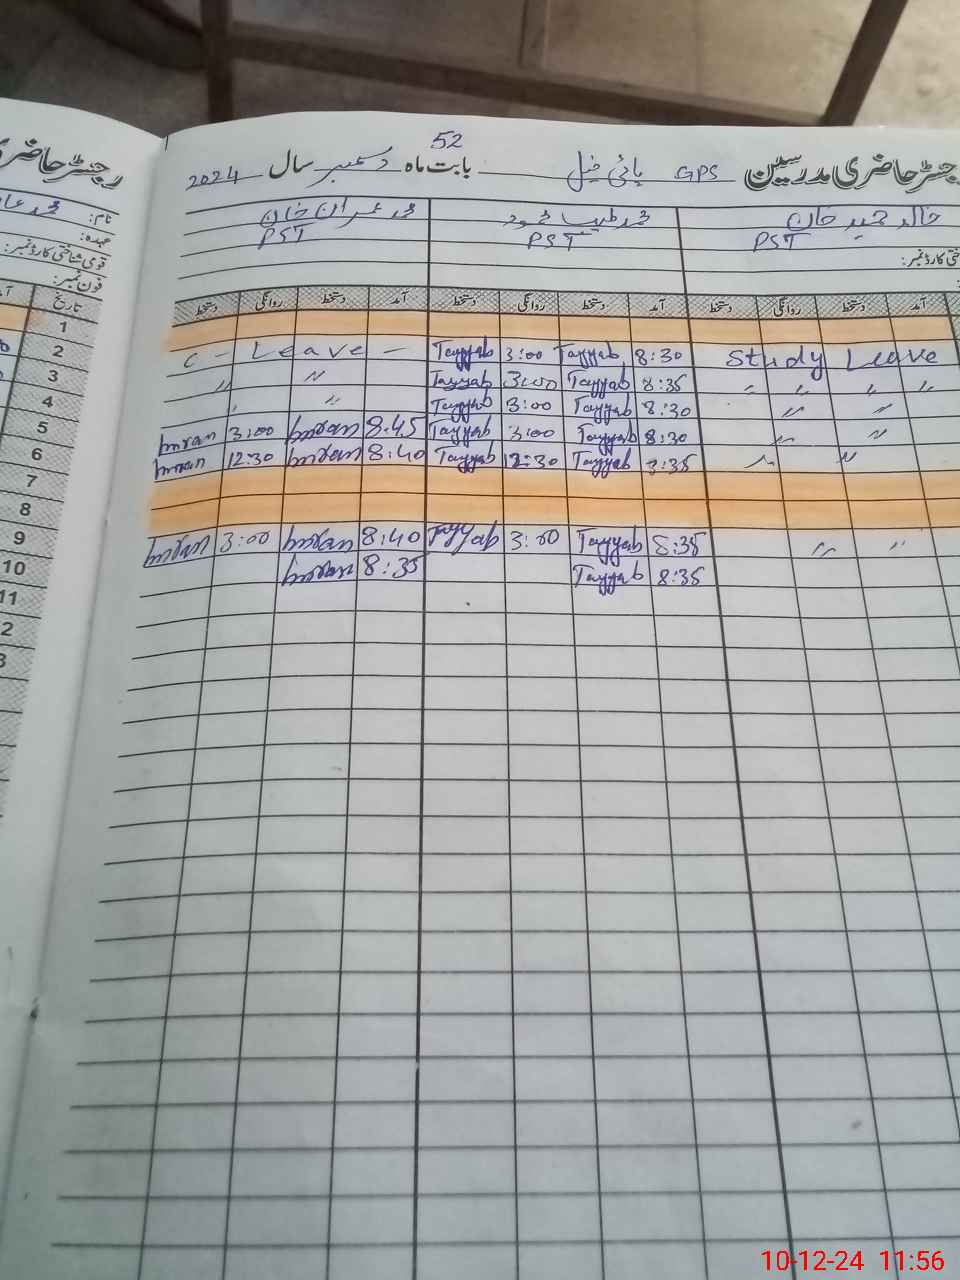 52
رجسٹر حاضری مدرسین GPS ہائی فیل بابت ماہ دسمبر سال 2024
رجسٹر حاضری
نام: محمد
عہدہ:
قومی شناختی کارڈ نمبر:
فون نمبر:
خالد حمید خان محمد طیب محمود محمد عمران خان
PST PST PST
کارڈ نمبر:
تاریخ
آمد دستخط روانگی دستخط آمد دستخط روانگی دستخط آمد دستخط روانگی دستخط
1
2 C - Leave - Tayyab 3:00 Tayyab 8:30 Study Leave
3 〃 〃 Tayyab 3:00 Tayyab 8:35 〃 〃 〃 〃
4 〃 〃 Tayyab 3:00 Tayyab 8:30 〃 〃
5 Imran 3:00 Imran 8:45 Tayyab 3:00 Tayyab 8:30 〃 〃
6 Imran 12:30 Imran 8:40 Tayyab 12:30 Tayyab 8:35 〃 〃
7
8
9 Imran 3:00 Imran 8:40 Tayyab 3:00 Tayyab 8:35 〃 〃
10 Imran 8:35 Tayyab 8:35
11
2
3
10-12-24 11:56